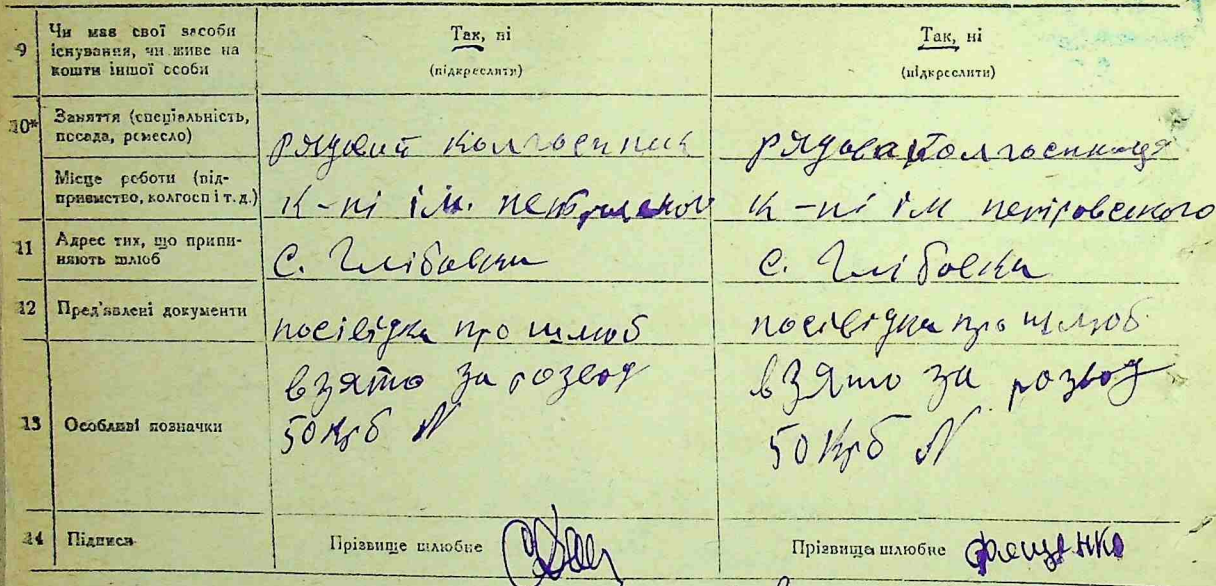 9 Чи має свої засоби існування, чи живе на кошти іншої особи
Так, ні
(підкреслити)
Так, ні
(підкреслити)
10* Заняття (спеціальність, посада, ремесло)
рядовий колгоспник
рядова колгоспниця
Місце роботи (підприємство, колгосп і т. д.)
к-пі ім.
к-пі ім петровського
11 Адрес тих, що припиняють шлюб
с. Глібовка
с. Глібовка
12 Пред'явлені документи
посівідка про шлюб
посівідка про шлюб
13 Особливі позначки
взято за розвод
50 крб N
взято за розвод
50 крб N
14 Підписи
Прізвище шлюбне
Прізвище шлюбне